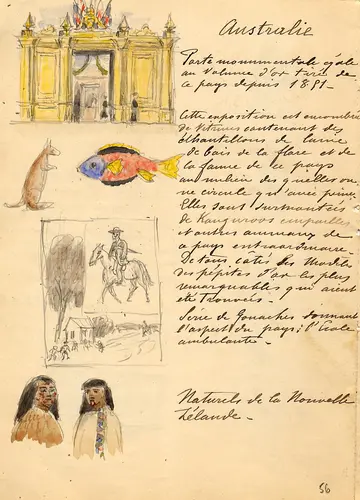 Australie
Porte monumentale égale
au volume d'or tiré de
ce pays depuis 1851-
Cette exposition est encombrée
de vitrines contenant des
échantillons de laine
de bois de la flore et de
la faune de ce pays
au milieu des quelles on
ne circule qu'avec peine
Elles sont surmontées
de Kanguroos empaillés
et autres animaux de
ce pays extraordinaire.
De tous cotés des Modèles
des pépites d'or les plus
remarquables qui aient
été trouvées.
Série de Gouaches donnant
l'aspect du pays; l'Ecole
ambulante -
Naturels de la Nouvelle
Zélande -
56